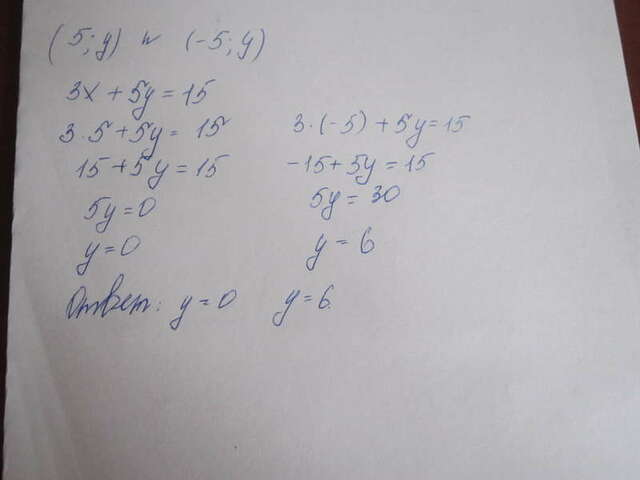 (5; y) и (-5; y)
3x + 5y = 15
3·5 + 5y = 15 3·(-5) + 5y = 15
15 + 5y = 15 -15 + 5y = 15
5y = 0 5y = 30
y = 0 y = 6
Ответ: y = 0 y = 6.